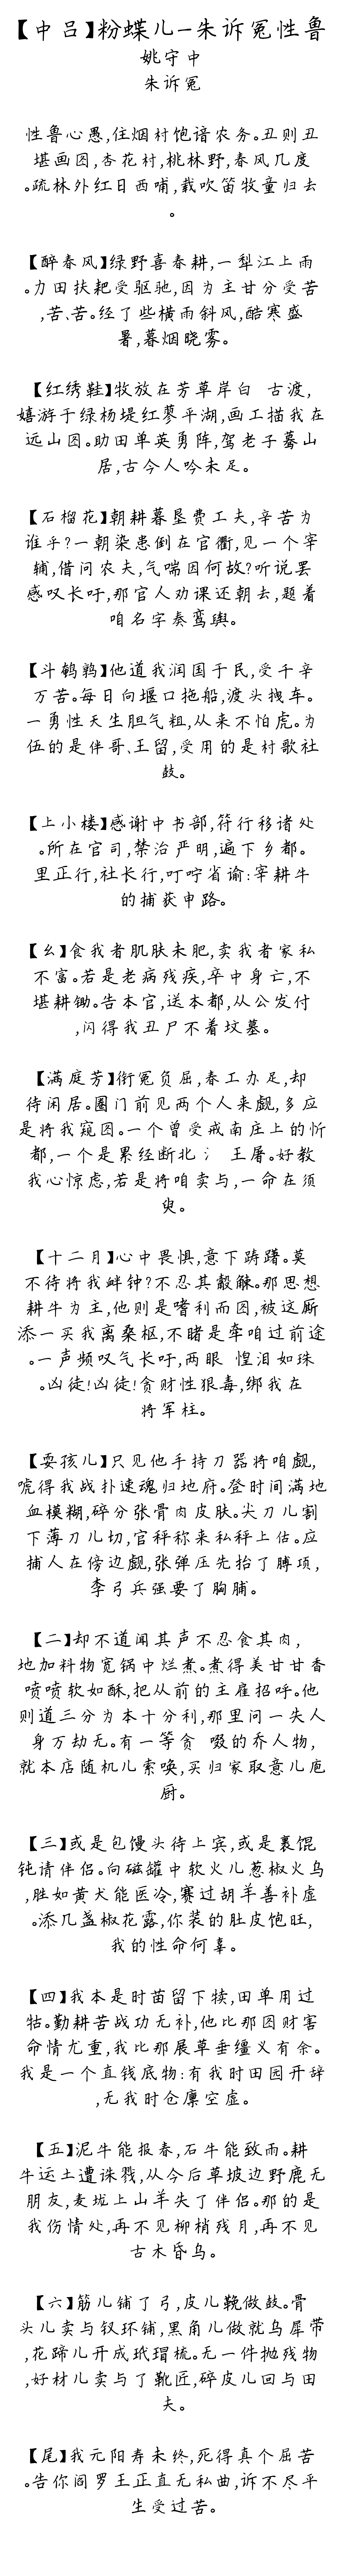 【中吕】粉蝶儿-朱诉冤性鲁
姚守中
朱诉冤
性鲁心愚,住烟村饱谙农务。丑则丑
堪画图,杏花村,桃林野,春风几度
。疏林外红日西晡,载吹笛牧童归去
。
【醉春风】绿野喜春耕,一犁江上雨
。力田扶耙受驱驰,因为主甘分受苦
,苦、苦。经了些横雨斜风,酷寒盛
暑,暮烟晓雾。
【红绣鞋】牧放在芳草岸白 古渡,
嬉游于绿杨堤红蓼平湖,画工描我在
远山图。助田单英勇阵,驾老子蓦山
居,古今人吟未足。
【石榴花】朝耕暮垦费工夫,辛苦为
谁乎?一朝染患倒在官衢,见一个宰
辅,借问农夫,气喘因何故?听说罢
感叹长吁,那官人劝课还朝去,题着
咱名字奏鸾舆。
【斗鹌鹑】他道我润国于民,受千辛
万苦。每日向堰口拖船,渡头拽车。
一勇性天生胆气粗,从来不怕虎。为
伍的是伴哥、王留,受用的是村歌社
鼓。
【上小楼】感谢中书部,符行移诸处
。所在官司,禁治严明,遍下乡都。
里正行,社长行,叮咛省谕:宰耕牛
的捕获申路。
【幺】食我者肌肤未肥,卖我者家私
不富。若是老病残疾,卒中身亡,不
堪耕锄。告本官,送本都,从公发付
,闪得我丑尸不着坟墓。
【满庭芳】衔冤负屈,春工办足,却
待闲居。圈门前见两个人来觑,多应
是将我窥图。一个曾受戒南庄上的忻
都,一个是累经断北 氵 王屠。好教
我心惊虑,若是将咱卖与,一命在须
臾。
【十二月】心中畏惧,意下踌躇。莫
不待将我衅钟?不忍其觳觫。那思想
耕牛为主,他则是嗜利而图,被这厮
添一买我离桑枢,不睹是牵咱过前途
。一声频叹气长吁,两眼 惶泪如珠
。凶徒!凶徒!贪财性狠毒,绑我在
将军柱。
【耍孩儿】只见他手持刀器将咱觑,
唬得我战扑速魂归地府。登时间满地
血模糊,碎分张骨肉皮肤。尖刀儿割
下薄刀儿切,官秤称来私秤上估。应
捕人在傍边觑,张弹压先抬了膊项,
李弓兵强要了胸脯。
【二】却不道闻其声不忍食其肉,
地加料物宽锅中烂煮。煮得美甘甘香
喷喷软如酥,把从前的主雇招呼。他
则道三分为本十分利,那里问一失人
身万劫无。有一等贪 啜的乔人物,
就本店随机儿索唤,买归家取意儿庖
厨。
【三】或是包馒头待上宾,或是裹馄
饨请伴侣。向磁罐中软火儿葱椒火乌
,胜如黄犬能医冷,赛过胡羊善补虚
。添几盏椒花露,你装的肚皮饱旺,
我的性命何辜。
【四】我本是时苗留下犊,田单用过
牯。勤耕苦战功无补,他比那图财害
命情尤重,我比那展草垂缰义有余。
我是一个直钱底物:有我时田园开辞
,无我时仓廪空虚。
【五】泥牛能报春,石牛能致雨。耕
牛运土遭诛戮,从今后草坡边野鹿无
朋友,麦垅上山羊失了伴侣。那的是
我伤情处,再不见柳梢残月,再不见
古木昏乌。
【六】筋儿铺了弓,皮儿鞔做鼓。骨
头儿卖与钗环铺,黑角儿做就乌犀带
,花蹄儿开成玳瑁梳。无一件抛残物
,好材儿卖与了靴匠,碎皮儿回与田
夫。
【尾】我元阳寿未终,死得真个屈苦
。告你阎罗王正直无私曲,诉不尽平
生受过苦。